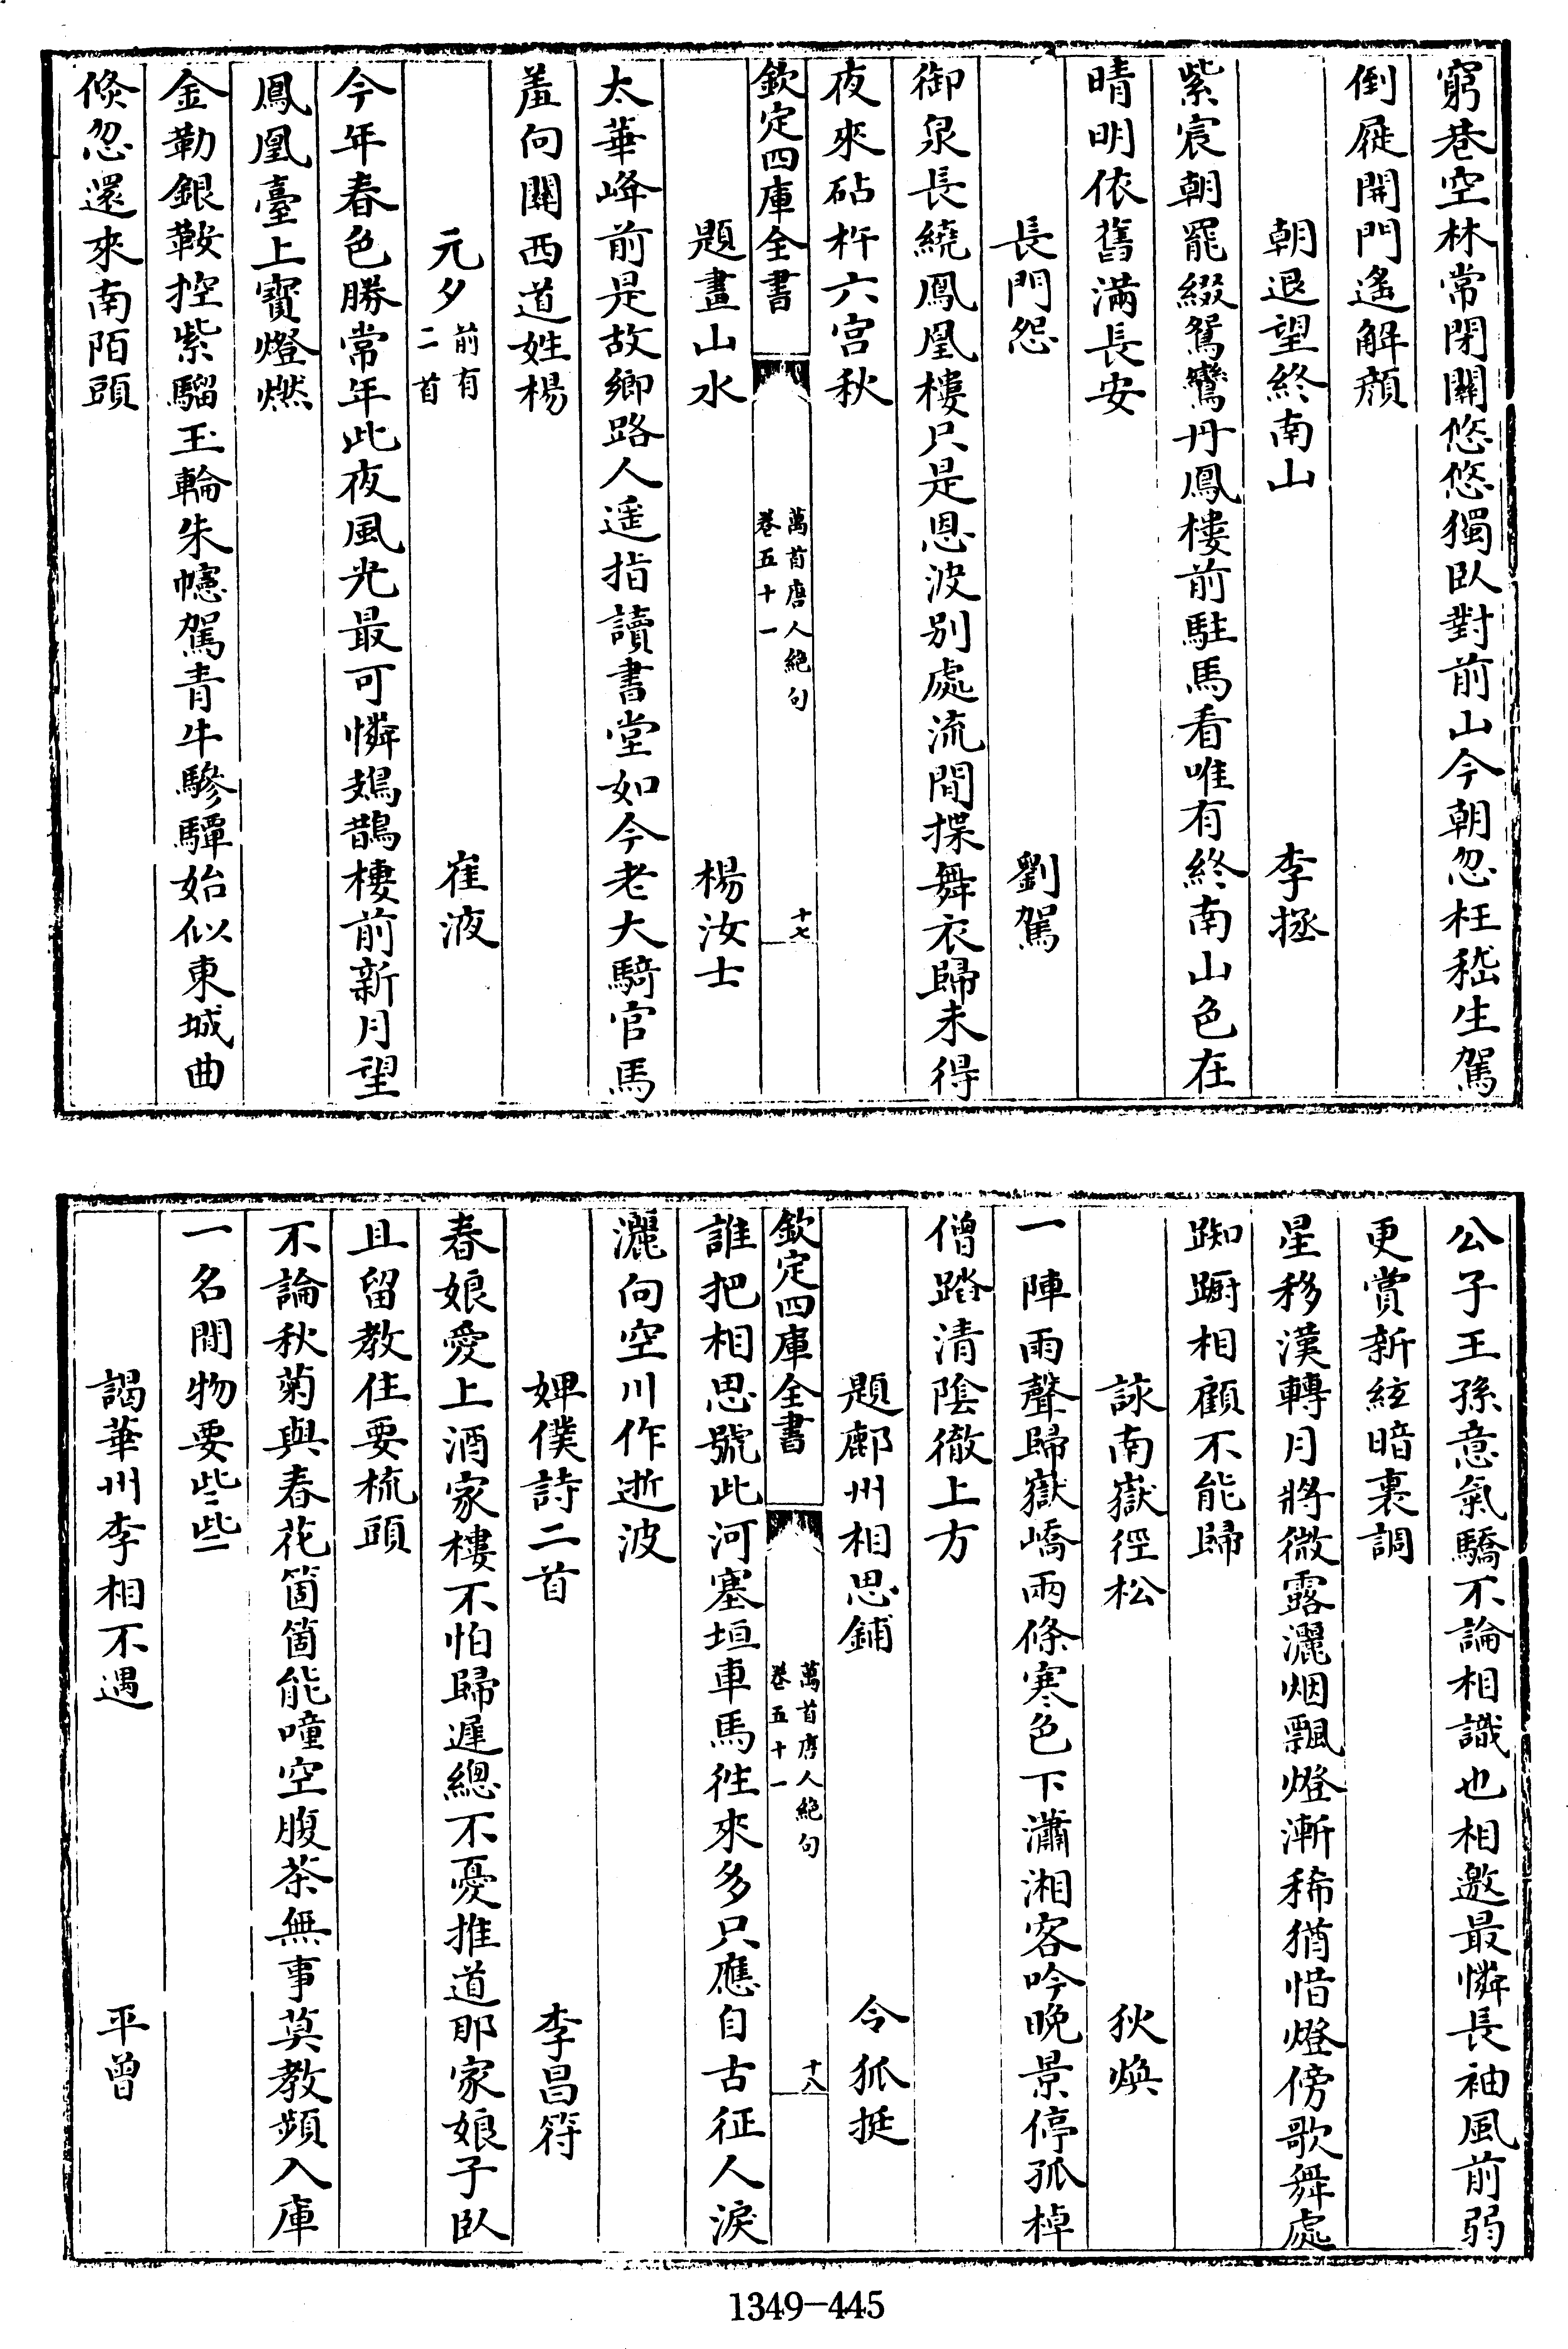 窮巷空林常閉關悠悠獨臥對前山今朝忽枉嵇生駕
倒屣開門遙解顔
朝退望終南山 李拯
紫宸朝罷綴鴛鸞丹鳳樓前駐馬看唯有終南山色在
晴明依舊滿長安
長門怨 劉駕
御泉長繞鳳凰樓只是恩波別處流閒揲舞衣歸未得
夜來砧杵六宫秋
欽定四庫全書 萬首唐人絶句 卷五十一 十七
題畫山水 楊汝士
太華峰前是故鄉路人遥指讀書堂如今老大騎官馬
羞向關西道姓楊
元夕 前有二首 崔液
今年春色勝常年此夜風光最可憐鳷鵲樓前新月望
鳳凰臺上寶燈燃
金勒銀鞍控紫騮玉輪朱幰駕青牛驂驔始似東城曲
倐忽還來南陌頭
公子王孫意氣驕不論相識也相邀最憐長袖風前弱
更賞新絃暗裏調
星移漢轉月將微露灑烟飄燈漸稀猶惜燈傍歌舞處
踟蹰相顧不能歸
詠南嶽徑松 狄煥
一陣雨聲歸嶽嶠兩條寒色下瀟湘客吟晚景停孤棹
僧踏清陰徹上方
題鄜州相思鋪 令狐挺
誰把相思號此河塞垣車馬往來多只應自古征人淚
灑向空川作逝波
欽定四庫全書 萬首唐人絶句 卷五十一 十八
婢僕詩二首 李昌符
春娘愛上酒家樓不怕歸遲總不憂推道那家娘子臥
且留教住要梳頭
不論秋菊與春花箇箇能噇空腹茶無事莫教頻入庫
一名閒物要些些
謁華州李相不遇 平曾
1349-445